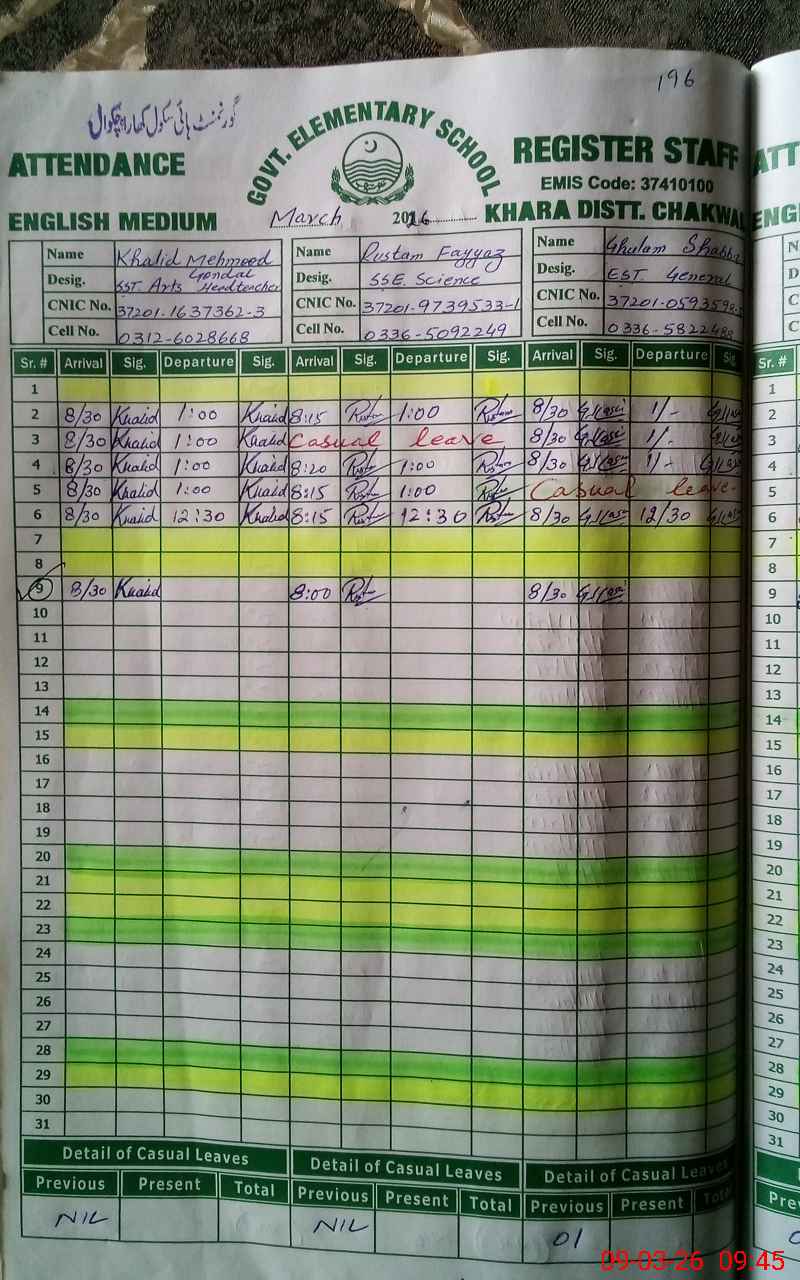 196
گورنمنٹ ہائی سکول کھارا چکوال
GOVT. ELEMENTARY SCHOOL
ATTENDANCE REGISTER STAFF
EMIS Code: 37410100
ENGLISH MEDIUM March 2026 KHARA DISTT. CHAKWAL
Name Khalid Mehmood Gondal Name Rustam Fayyaz Name Ghulam
Desig. SST Arts Headteacher Desig. SSE Science Desig. EST General
CNIC No. 37201-1637362-3 CNIC No. 37201-9739533-1 CNIC No. 37201-0593598-
Cell No. 0312-6028668 Cell No. 0336-5092249 Cell No. 0336-5822488
Sr. # Arrival Sig. Departure Sig. Arrival Sig. Departure Sig. Arrival Sig. Departure Sig
1
2 8/30 Khalid 1:00 Khalid 8:15 Rustam 1:00 Rustam 8/30 1/-
3 8/30 Khalid 1:00 Khalid Casual leave 8/30 1/-
4 8/30 Khalid 1:00 Khalid 8:20 Rustam 1:00 Rustam 8/30 1/-
5 8/30 Khalid 1:00 Khalid 8:15 Rustam 1:00 Rustam Casual leave
6 8/30 Khalid 12:30 Khalid 8:15 Rustam 12:30 Rustam 8/30 12/30
7
8
9 8/30 Khalid 8:00 Rustam 8/30
10
11
12
13
14
15
16
17
18
19
20
21
22
23
24
25
26
27
28
29
30
31
Detail of Casual Leaves Detail of Casual Leaves Detail of Casual Leaves
Previous Present Total Previous Present Total Previous Present Total
NIL NIL 01
09-03-26 09:45